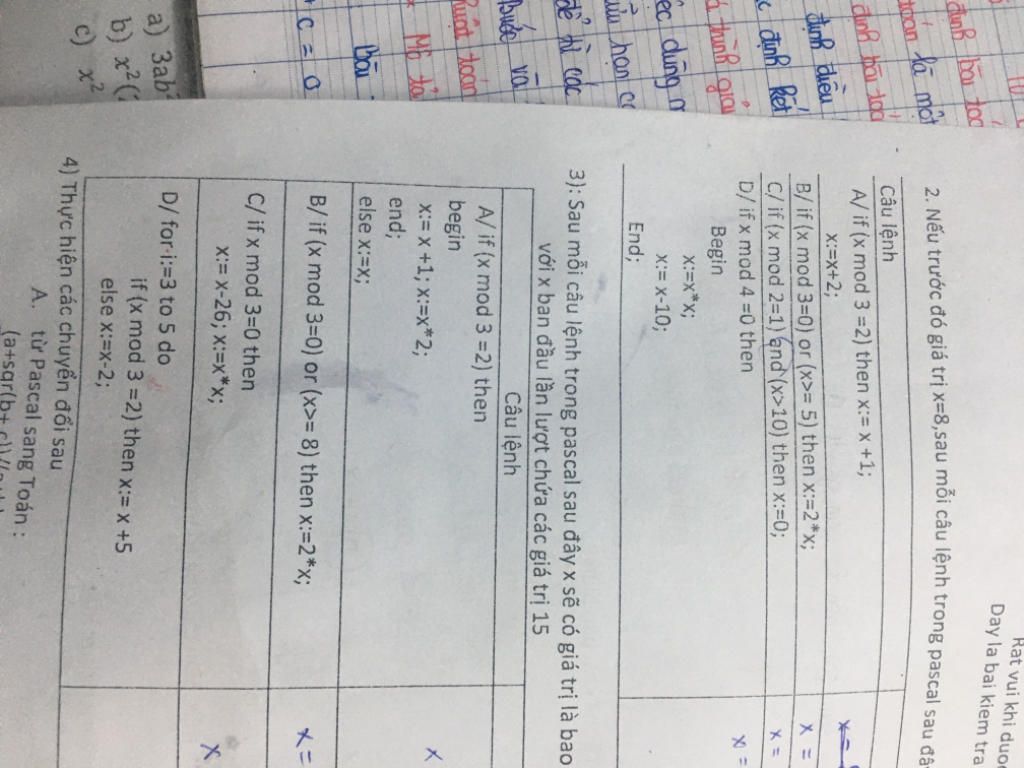 10
định bài toá
toán là một
định bài toá
định điều
định kết
á trình giải
ệc dùng
hữu hạn c
để chỉ các
Bước và
thuật toán
Mô tả
bài
+ c = 0
a) 3ab²
b) x²(
c) x²
Rat vui khi duo
Day la bai kiem tra
2. Nếu trước đó giá trị x=8,sau mỗi câu lệnh trong pascal sau đâ
Câu lệnh
A/ if (x mod 3 =2) then x:= x +1;
x:=x+2;
x=
B/ if (x mod 3=0) or (x>= 5) then x:=2*x;
x =
C/ if (x mod 2=1) and (x>10) then x:=0;
x =
D/ if x mod 4 =0 then
x =
Begin
x:=x*x;
x:= x-10;
End;
3): Sau mỗi câu lệnh trong pascal sau đây x sẽ có giá trị là bao
với x ban đầu lần lượt chứa các giá trị 15
Câu lệnh
A/ if (x mod 3 =2) then
begin
x:= x +1; x:=x*2;
end;
else x:=x;
x
B/ if (x mod 3=0) or (x>= 8) then x:=2*x;
x =
C/ if x mod 3=0 then
x:= x-26; x:=x*x;
x
D/ for i:=3 to 5 do
if (x mod 3 =2) then x:= x +5
else x:=x-2;
4) Thực hiện các chuyển đổi sau
A. từ Pascal sang Toán :
(a+sqr(b+c))/(